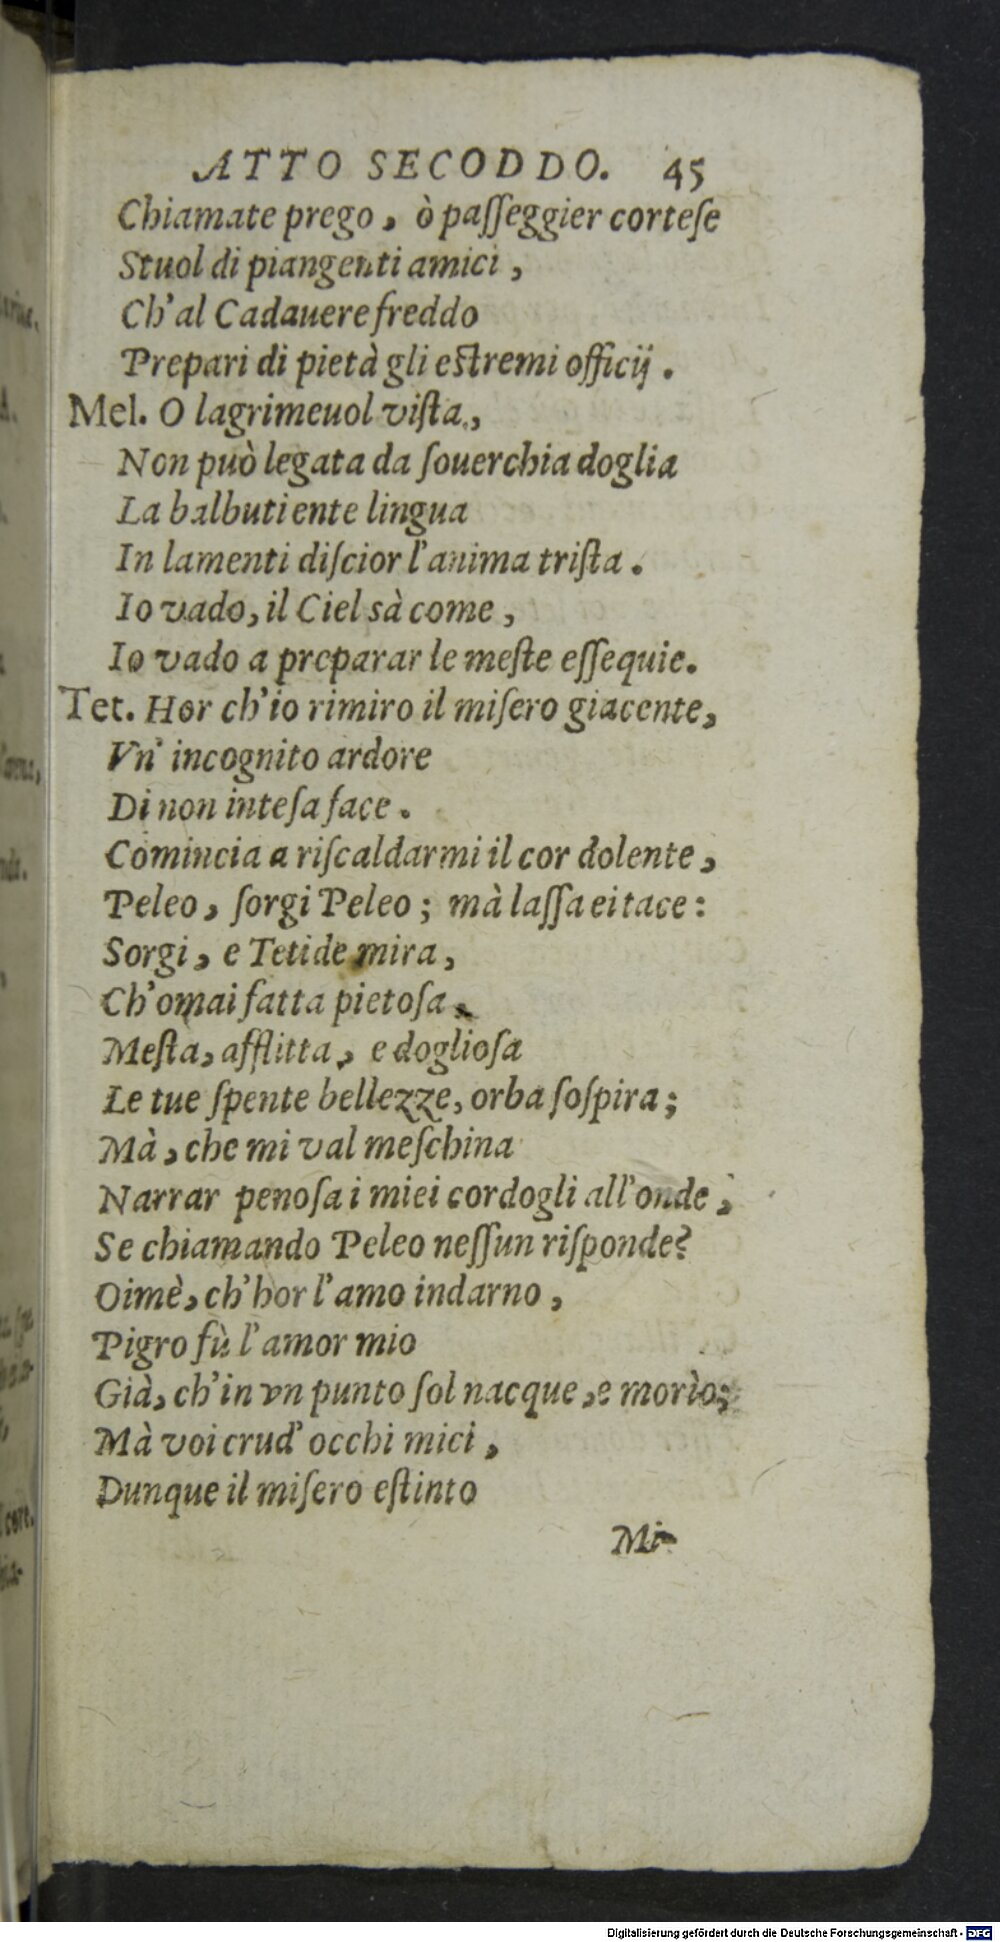 ATTO SECODDO. 45
Chiamate prego, ò paſſeggier corteſe
Stuol di piangenti amici,
Ch'al Cadauere freddo
Prepari di pietà gli eſtremi officij.
Mel. O lagrimeuol viſta,
Non può legata da ſouerchia doglia
La balbutiente lingua
In lamenti diſcior l'anima triſta.
Io vado, il Ciel sà come,
Io vado a preparar le meſte eſſequie.
Tet. Hor ch'io rimiro il miſero giacente,
Vn' incognito ardore
Di non inteſa face.
Comincia a riſcaldarmi il cor dolente,
Peleo, ſorgi Peleo; mà laſſa ei tace:
Sorgi, e Tetide mira,
Ch'omai fatta pietoſa,
Meſta, afflitta, e doglioſa
Le tue ſpente bellezze, orba ſoſpira;
Mà, che mi val meſchina
Narrar penoſa i miei cordogli all'onde,
Se chiamando Peleo neſſun riſponde?
Oimè, ch'hor l'amo indarno,
Pigro fù l'amor mio
Già, ch'in vn punto ſol nacque, e morìo;
Mà voi crud' occhi miei,
Dunque il miſero eſtinto
Mi-
Digitalisierung gefördert durch die Deutsche Forschungsgemeinschaft - DFG